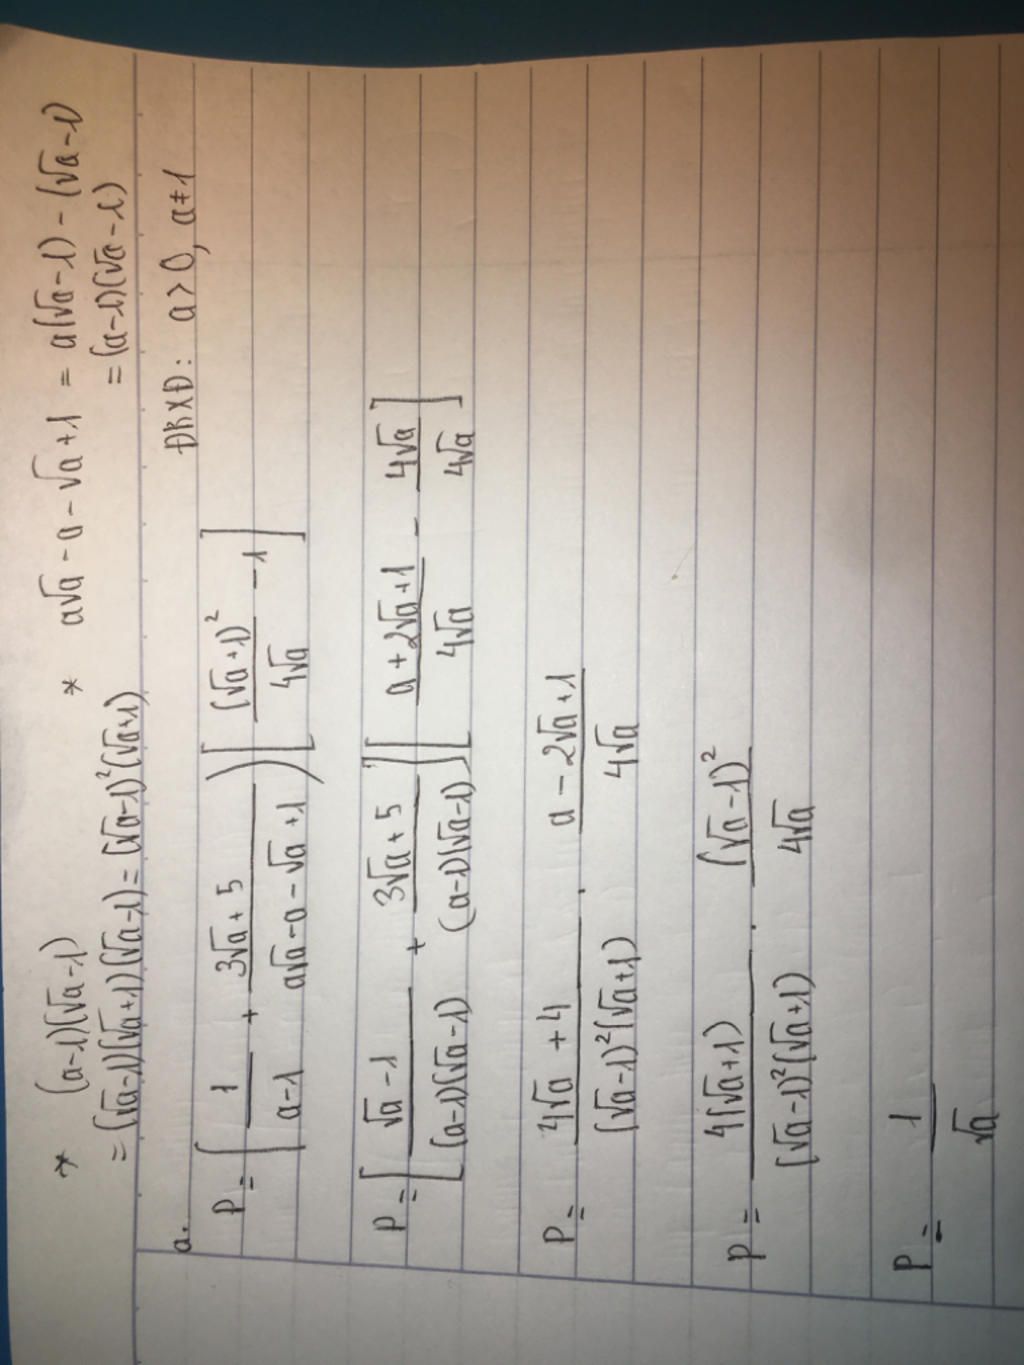 * (a-1)(√a-1) * a√a - a - √a + 1 = a(√a-1) - (√a-1)
= (√a-1)(√a+1)(√a-1) = (√a-1)²(√a+1) = (a-1)(√a-1)
a. ĐKXĐ: a > 0, a ≠ 1
P = [1/(a-1) + (3√a+5)/(a√a-a-√a+1)) [(√a+1)²/(4√a) - 1]
P = [(√a-1)/((a-1)(√a-1)) + (3√a+5)/((a-1)(√a-1))] [(a+2√a+1)/(4√a) - 4√a/(4√a)]
P = (4√a+4)/((√a-1)²(√a+1)) . (a-2√a+1)/(4√a)
P = 4(√a+1)/((√a-1)²(√a+1)) . (√a-1)²/(4√a)
P = 1/√a